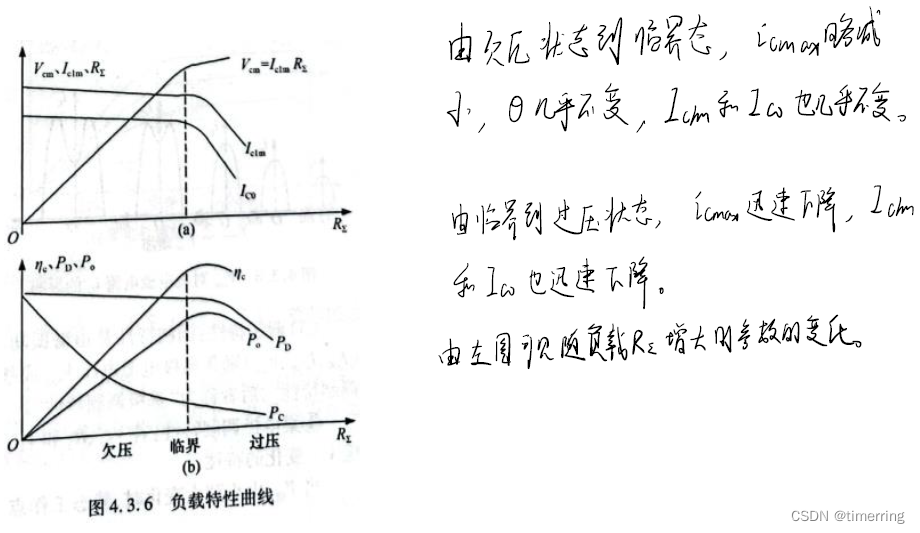 V_cm、I_c1m、R_Σ
V_cm=I_c1m R_Σ
I_c1m
I_C0
O
R_Σ
(a)
η_c、P_D、P_o
η_c
P_o
P_D
P_C
O
欠压
临界
过压
R_Σ
(b)
图4.3.6 负载特性曲线
由欠压状态到临界态，i_cmax略减
小，θ几乎不变，I_c1m和I_C0也几乎不变。
由临界到过压状态，i_cmax迅速下降，I_c1m
和I_C0也迅速下降。
由左图可见随负载R_Σ增大的参数的变化。
CSDN @timerring